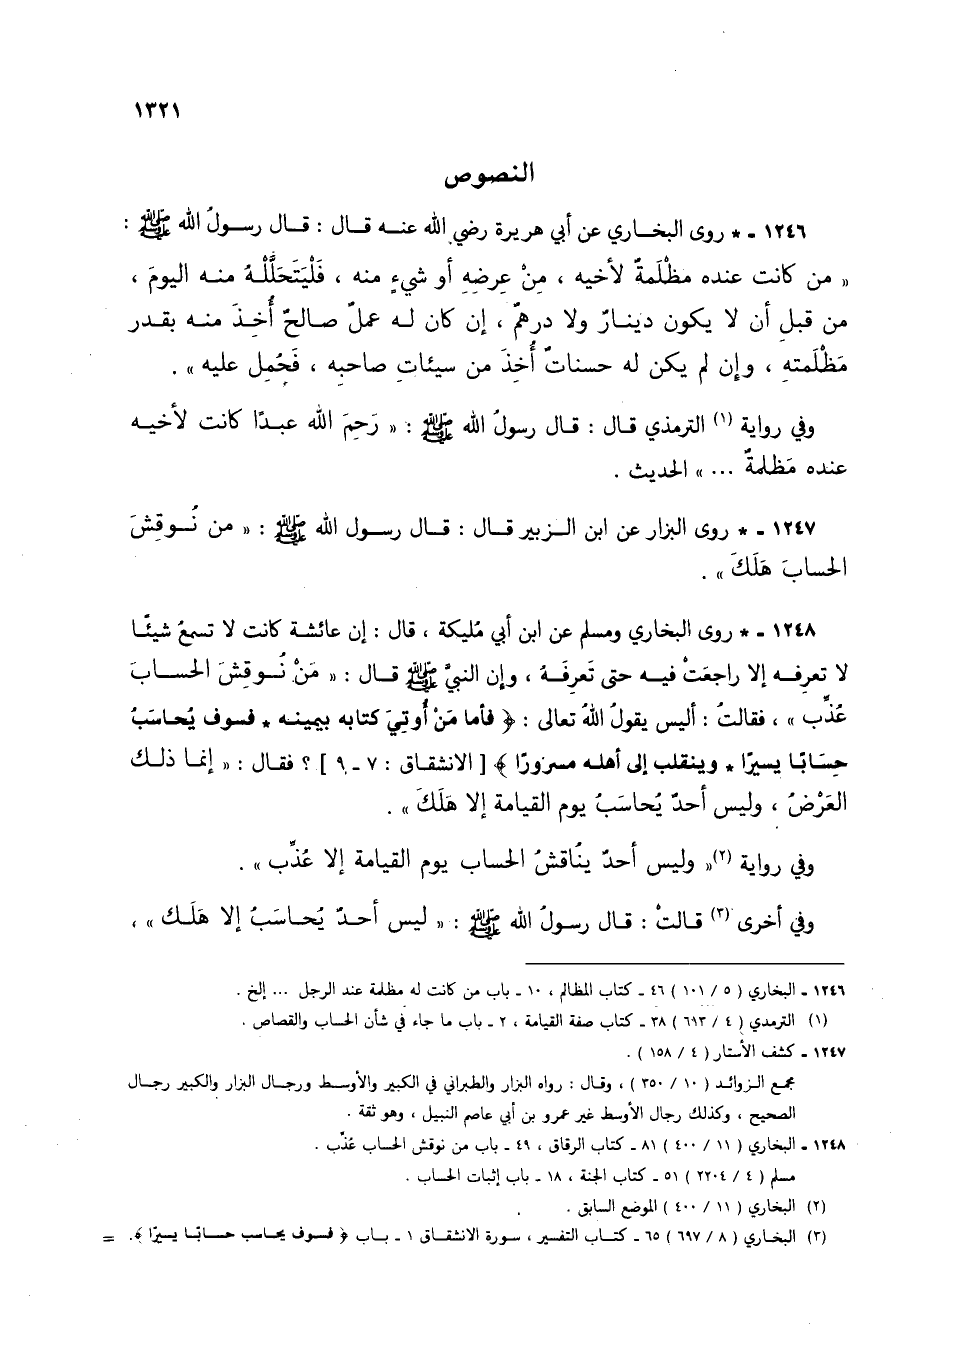 ١٣٢١
النصوص
١٢٤٦ - * روى البخاري عن أبي هريرة رضي الله عنه قال : قال رسولُ الله ﷺ :
« من كانت عنده مظْلَمةٌ لأخيه ، مِنْ عِرضِهِ أو شيءٍ منه ، فَلْيَتَحَلَّلْهُ منه اليومَ ،
من قبلِ أن لا يكون دينارٌ ولا درهمٌ ، إن كان له عملٌ صالحٌ أُخِذَ منه بقدر
مَظْلَمتهِ ، وإن لم يكن له حسناتٌ أُخِذَ من سيئاتِ صاحبِه ، فَحُمِل عليه » .
وفي رواية (١) الترمذي قال : قال رسولُ الله ﷺ : « رَحِمَ الله عبدًا كانت لأخيه
عنده مَظلمةٌ ... » الحديث .
١٢٤٧ - * روى البزار عن ابن الزبير قال : قال رسول الله ﷺ : « من نُوقِشَ
الحسابَ هَلَكَ » .
١٢٤٨ - * روى البخاري ومسلم عن ابن أبي مُليكة ، قال : إن عائشة كانت لا تسمعُ شيئًا
لا تعرفه إلا راجعَتْ فيه حتى تَعرفَهُ ، وإن النبيَّ ﷺ قال : « مَنْ نُوقِشَ الحسابَ
عُذِّب » ، فقالتُ : أليس يقولُ اللهُ تعالى : ﴿ فأما مَنْ أُوتِيَ كتابه بيمينه * فسوف يُحاسَبُ
حِسَابًا يسيرًا * وينقلب إلى أهله مسرورًا ﴾ [ الانشقاق : ٧ - ٩ ] ؟ فقال : « إنما ذلك
العَرْضُ ، وليس أحدٌ يُحاسَبُ يوم القيامة إلا هَلَكَ » .
وفي رواية (٢)« وليس أحدٌ يناقَشُ الحساب يوم القيامة إلا عُذِّب » .
وفي أخرى (٣) قالتْ : قال رسولُ الله ﷺ : « ليس أحدٌ يُحاسَبُ إلا هَلَك » ،
١٢٤٦ - البخاري ( ٥ / ١٠١ ) ٤٦ - كتاب المظالم ، ١٠ - باب من كانت له مظلمة عند الرجل ... إلخ .
(١) الترمذي ( ٤ / ٦١٣ ) ٣٨ - كتاب صفة القيامة ، ٢ - باب ما جاء في شأن الحساب والقصاص .
١٢٤٧ - كشف الأستار ( ٤ / ١٥٨ ) .
مجمع الزوائد ( ١٠ / ٣٥٠ ) ، وقال : رواه البزار والطبراني في الكبير والأوسط ورجال البزار والكبير رجال
الصحيح ، وكذلك رجال الأوسط غير عمرو بن أبي عاصم النبيل ، وهو ثقة .
١٢٤٨ - البخاري ( ١١ / ٤٠٠ ) ٨١ - كتاب الرقاق ، ٤٩ - باب من نوقش الحساب عُذِّب .
مسلم ( ٤ / ٢٢٠٤ ) ٥١ - كتاب الجنة ، ١٨ - باب إثبات الحساب .
(٢) البخاري ( ١١ / ٤٠٠ ) الموضع السابق .
(٣) البخاري ( ٨ / ٦٩٧ ) ٦٥ - كتاب التفسير ، سورة الانشقاق ١ - باب ﴿ فسوف يحاسب حسابًا يسيرًا ﴾. =